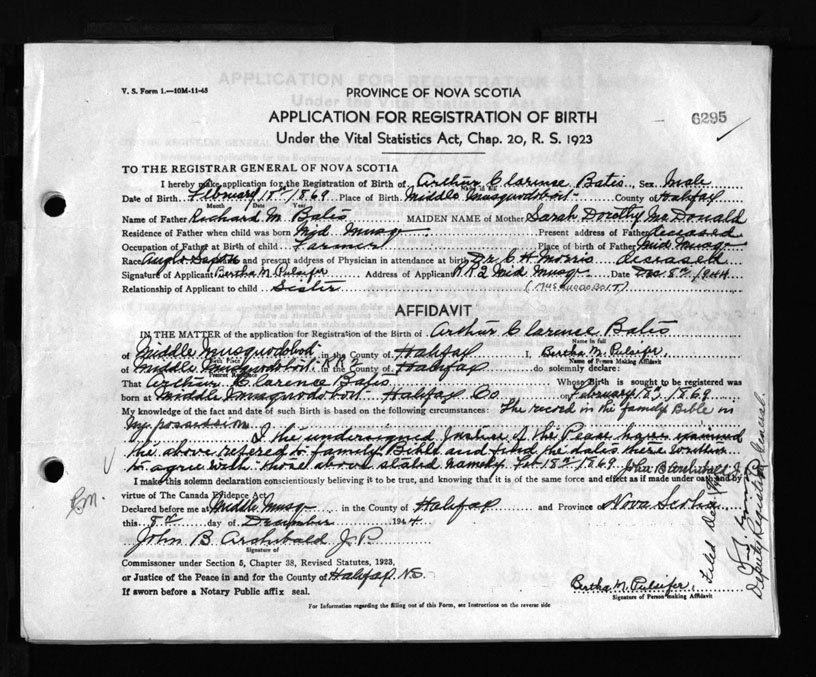 V. S. Form 1.—10M-11-43
PROVINCE OF NOVA SCOTIA
APPLICATION FOR REGISTRATION OF BIRTH
6295
Under the Vital Statistics Act, Chap. 20, R. S. 1923
TO THE REGISTRAR GENERAL OF NOVA SCOTIA
I hereby make application for the Registration of Birth of Arthur Clarense Batis Sex Male
Name in full
Date of Birth February 18th 1869 Place of Birth Middle Musquodoboit County of Halifax
Month Day Year
Name of Father Richard M. Batis MAIDEN NAME of Mother Sarah Dorothy McDonald
Residence of Father when child was born Mid Musqo Present address of Father deceased
Occupation of Father at Birth of child Farmer Place of birth of Father Mid Musqo
Race Anglo Saxon and present address of Physician in attendance at birth Dr C H Morris deceased
Signature of Applicant Bertha M. Pulsifer Address of Applicant R R 2 Mid Musqo Date Dec 8th 1944
Relationship of Applicant to child Sister (MUSQUODOBOIT)
AFFIDAVIT
IN THE MATTER of the application for Registration of the Birth of Arthur Clarense Batis
Name in full
of Middle Musquodoboit in the County of Halifax I, Bertha M. Pulsifer,
Birth Place Name of Person Making Affidavit
of Middle Musquodoboit R R 2 in the County of Halifax do solemnly declare:
Present Residence
That Arthur Clarense Batis Whose Birth is sought to be registered was
born at Middle Musquodoboit Halifax Co on February 18, 1869
My knowledge of the fact and date of such Birth is based on the following circumstances: The record in the family Bible in
my possession I the undersigned Justice of the Peace have examined
the above refered to family Bible and find the datis there written
to agree with those above stated namely Feb 18th 1869 John B Archibald J
I make this solemn declaration conscientiously believing it to be true, and knowing that it is of the same force and effect as if made under oath and by
virtue of The Canada Evidence Act.
Declared before me at Middle Musqo in the County of Halifax and Province of Nova Scotia
this 8th day of December 1944
John B. Archibald J. P.
Signature of
Commissoner under Section 5, Chapter 38, Revised Statutes, 1923,
or Justice of the Peace in and for the County of Halifax N.S.
Bertha M. Pulsifer,
If sworn before a Notary Public affix seal.
Signature of Person making Affidavit
For Information regarding the filling out of this Form, see Instructions on the reverse side
Filed Dec
Deputy Registrar General.